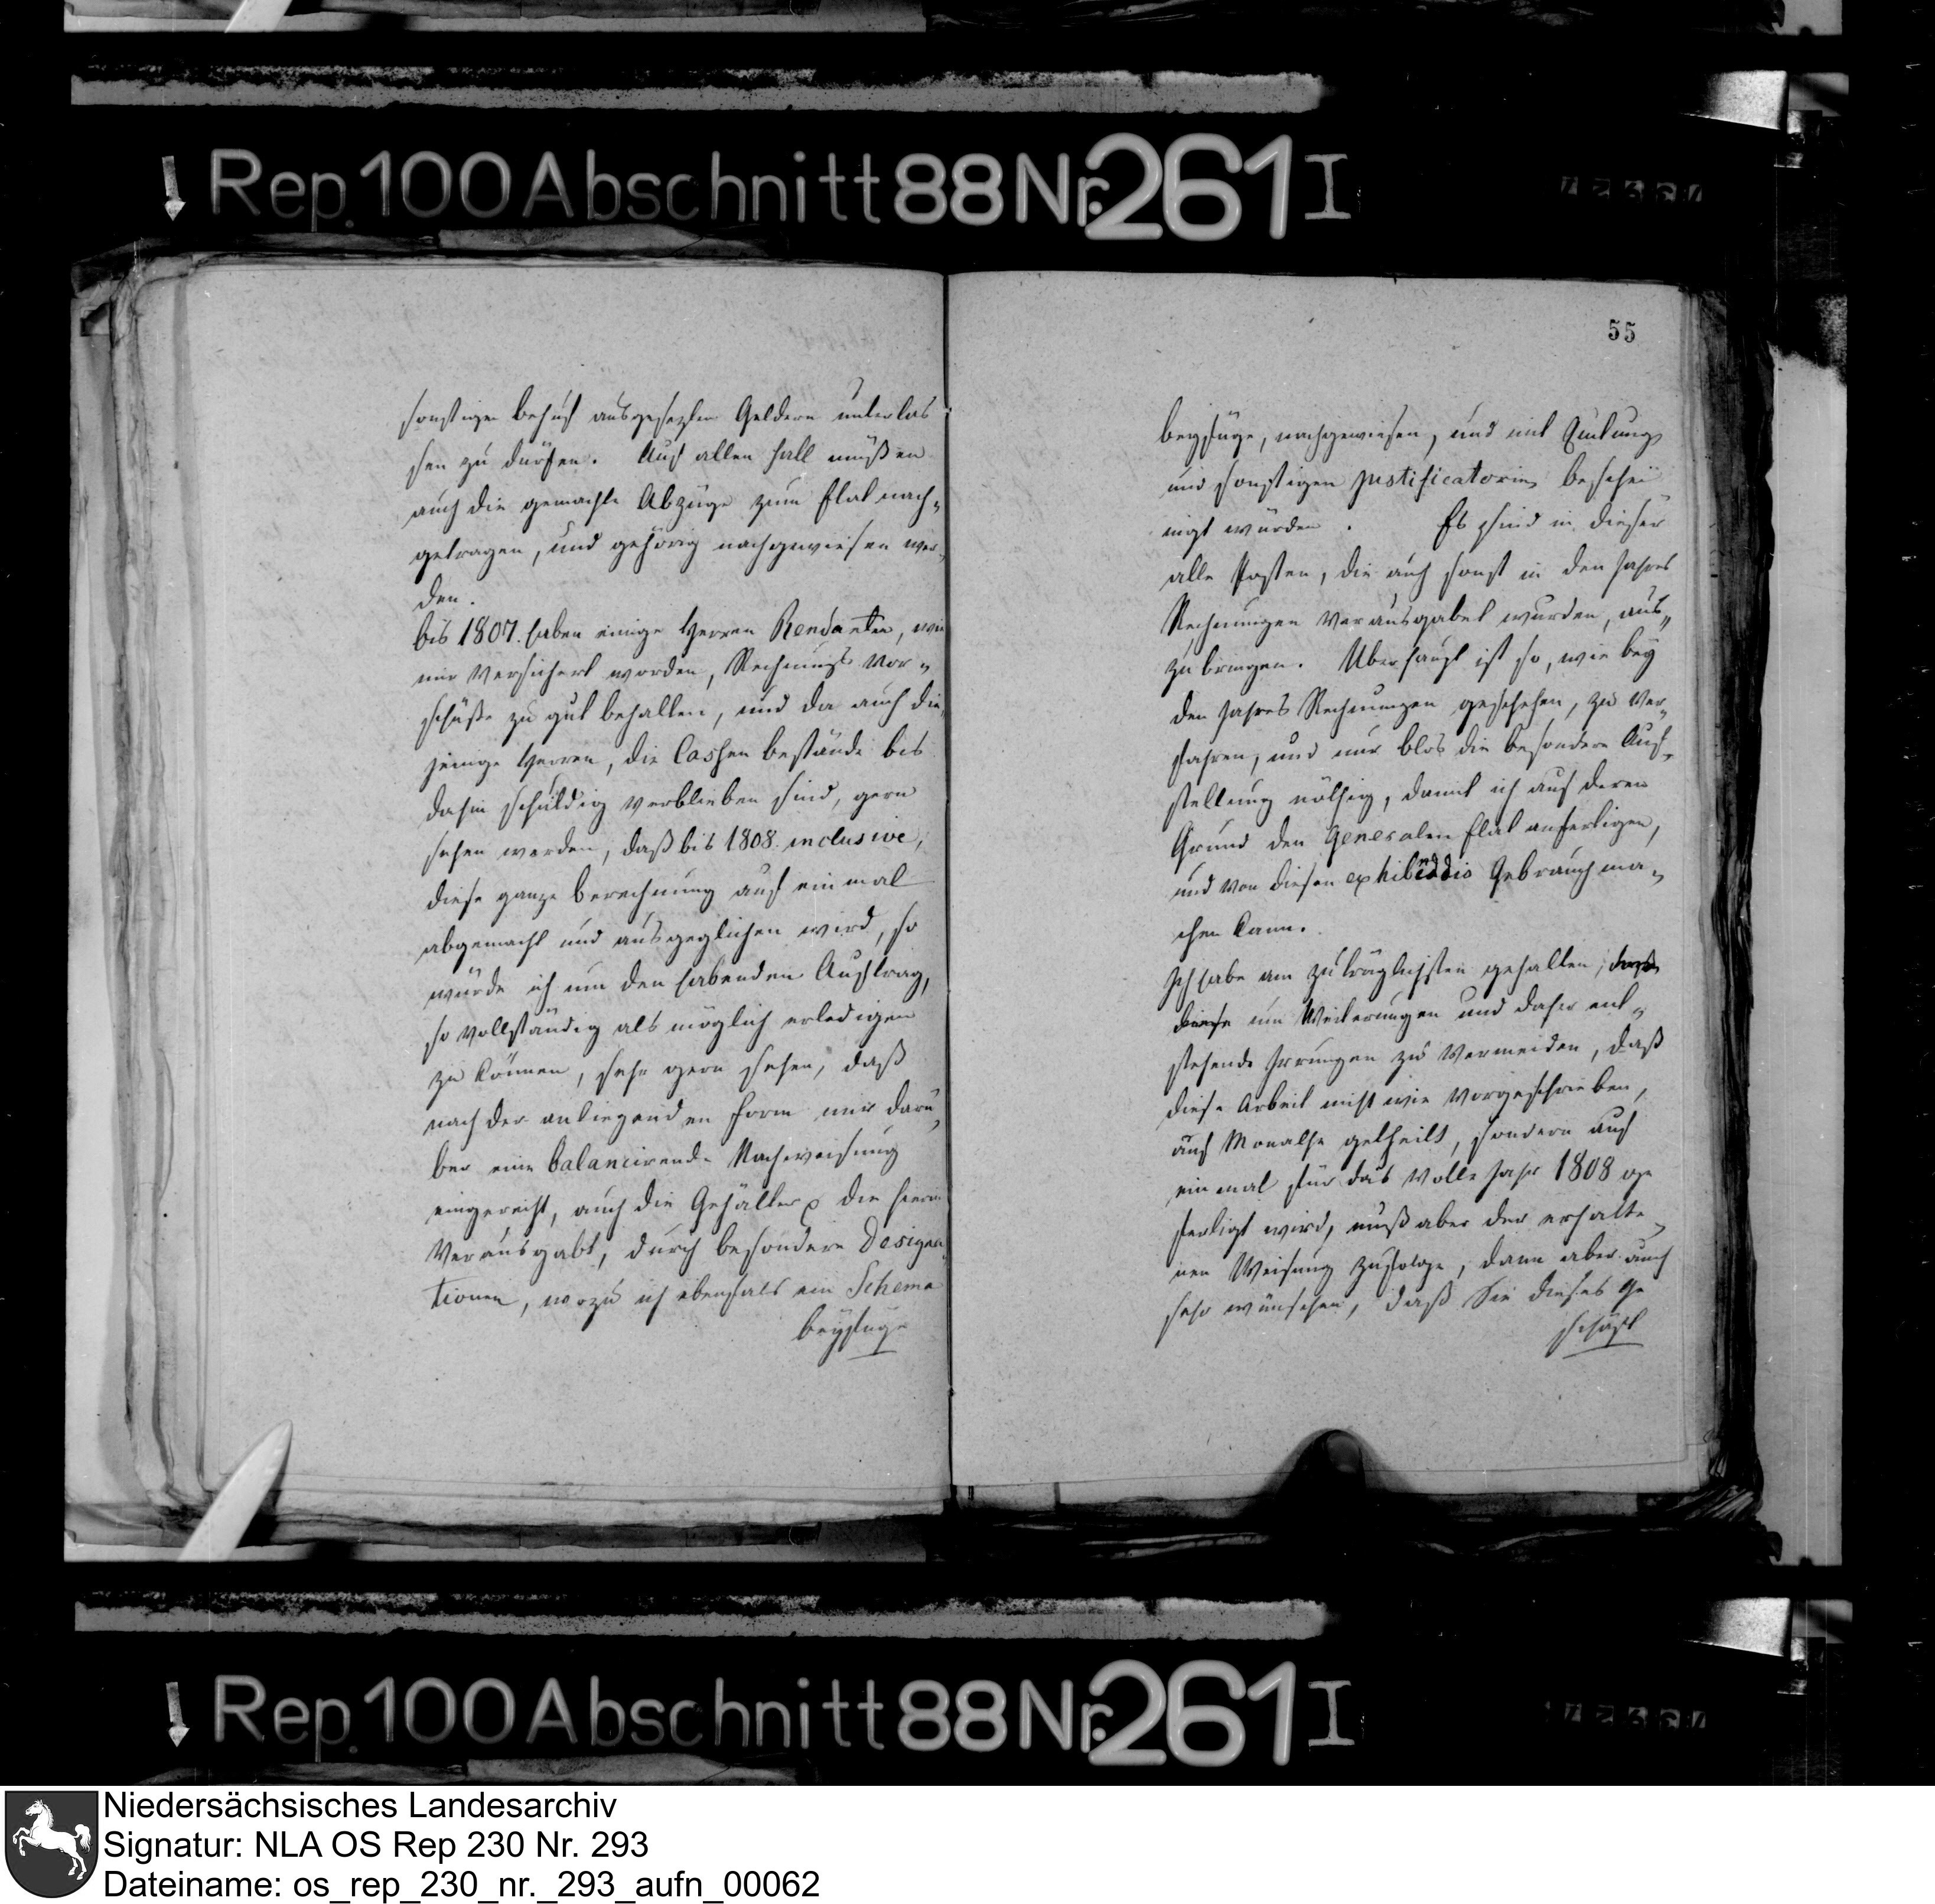 Rep. 100 Abschnitt 88 Nr. 261 I
sonstigen Behuf ausgesezten Geldern unterlas
sen zu dürfen. Auf allen Fall müßen
auch die gemachte Abzüge zum Etat nach„
getragen, und gehörig nachgewiesen wer„
den.
Bis 1807. haben einige Herren Rendanten, wie
mir versichert worden, Rechnungs Vor„
schüße zu gut behalten, und da auch die„
jenige Herren, die Cassen bestände bis
dahin schuldig verblieben sind, gern
sehen werden, daß bis 1808. inclusive,
diese ganze Berechnung auf einmal
abgemacht und ausgeglichen wird, so
würde ich um den habenden Auftrag,
so vollständig als möglich erledigen
zu können, sehr gern sehen, daß
nach der anliegenden Form mir darü„
ber eine balancirende Nachweisung
eingereicht, auch die Gehälter die hierin
verausgabt, durch besondere Designa
tionen, wozu ich ebenfals ein Schema
beyfüge
55
beyfüge, nachgewiesen, und mit Quitungs
und sonstigen justificatorien beschei
nigt würden. Es sind in dieser
alle Posten, die auch sonst in den Jahres
Rechnungen verausgabet wurden, aus„
zubringen. Überhaupt ist so, wie bey
den Jahres Rechnungen geschehen, zu ver„
fahren, und nur blos die besondere Auf„
stellung nöthig, damit ich auf deren
Grund den Generalen Etat anfertigen,
und von diesen exhibendis Gebrauch ma„
chen kann.
Ich habe am zuträglichsten gehalten, daß
diese um Weiterungen und daher ent„
stehende Irrungen zu vermeiden, daß
diese Arbeit nicht wie vorgeschrieben,
auf Monathe getheilt, sondern auf
einmal für das volle Jahr 1808 ge
fertigt wird, muß aber der erhalte„
nen Weisung zufolge, dann aber auch
sehr wünschen, daß Sie dieses Ge
schäft
Rep. 100 Abschnitt 88 Nr. 261 I
Niedersächsisches Landesarchiv
Signatur: NLA OS Rep 230 Nr. 293
Dateiname: os_rep_230_nr._293_aufn_00062